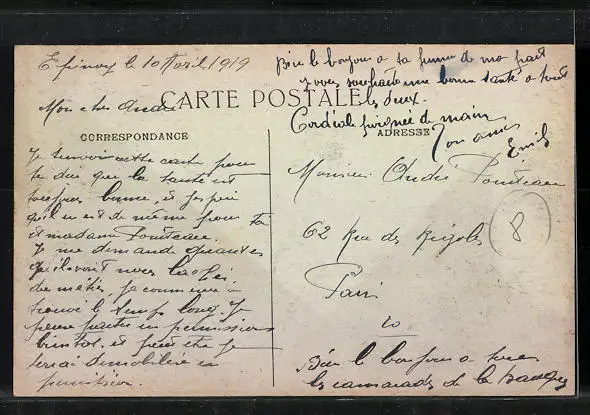 Epinay le 10 Avril 1919
Bien le bonjour a ta femme de ma part
je vous souhaite une bonne santé a tout
les deux.
Cordiale poignée de main
Ton ami
Emil
Mon cher André
CARTE POSTALE
CORRESPONDANCE
ADRESSE
Je t'envoie cette carte pour
te dire que la santé est
toujours bonne, et j'espère
qu'il en est de même pour toi
et madame Pouiteau.
Je me demande quand es
qu'ils vont nous
du métier, je commence à
trouvé le temps long. Je
pense partir en permission
bientot, et peut etre je
serai démobilisé en
permission.
Monsieur André Pouiteau
62 Rue des Rigoles
Paris
20
8
Bien le bonjour a tous
les camarades de la